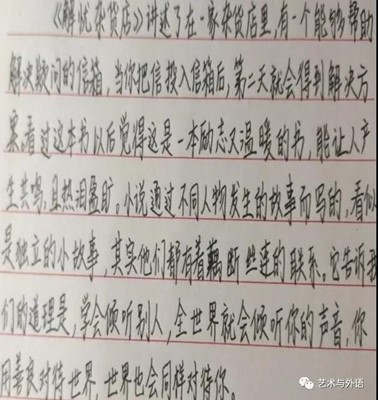 《解忧杂货店》讲述了在一家杂货店里,有一个能够帮助
解决疑问的信箱,当你把信投入信箱后,第二天就会得到解决方
案。看过这本书以后觉得这是一本励志又温暖的书,能让人产
生共鸣,且热泪盈眶。小说通过不同人物发生的故事而写的,看似
是独立的小故事,其实他们都有着藕断丝连的联系。它告诉我
们的道理是,学会倾听别人,全世界就会倾听你的声音,你
用善良对待世界,世界也会同样对待你。
艺术与外语